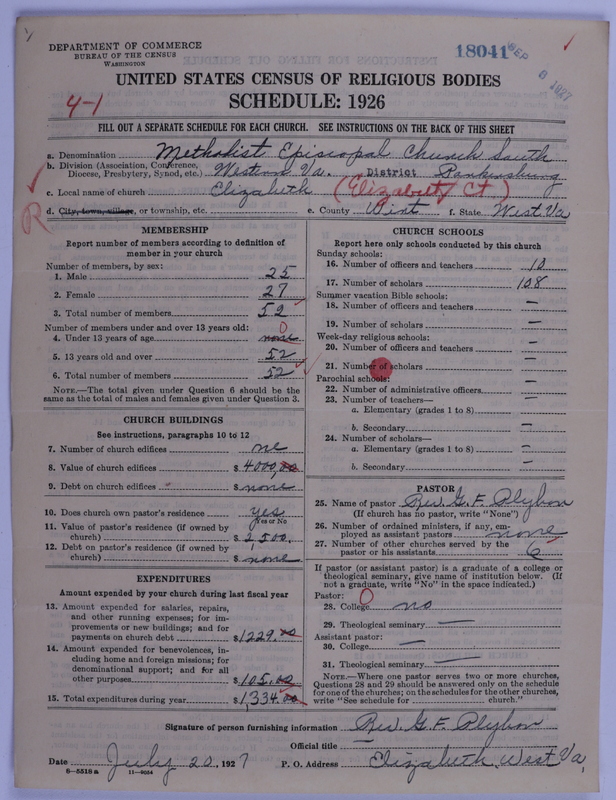 DEPARTMENT OF COMMERCE
BUREAU OF THE CENSUS
WASHINGTON
18041
SEP 8 1927
UNITED STATES CENSUS OF RELIGIOUS BODIES
4-1
SCHEDULE: 1926
FILL OUT A SEPARATE SCHEDULE FOR EACH CHURCH. SEE INSTRUCTIONS ON THE BACK OF THIS SHEET
a. Denomination Methodist Episcopal Church South
b. Division (Association, Conference, Diocese, Presbytery, Synod, etc.) Western Va. District Parkersburg
c. Local name of church Elizabeth (Elizabeth Ct.)
R
d. City, town, village, or township, etc. e. County Wirt f. State West Va
MEMBERSHIP
Report number of members according to definition of
member in your church
Number of members, by sex:
1. Male 25
2. Female 27
3. Total number of members 52
Number of members under and over 13 years old:
4. Under 13 years of age none 0
5. 13 years old and over 52
6. Total number of members 52
NOTE.—The total given under Question 6 should be the
same as the total of males and females given under Question 3.
CHURCH BUILDINGS
See instructions, paragraphs 10 to 12
7. Number of church edifices one
8. Value of church edifices $ 4000.00
9. Debt on church edifices $ none
10. Does church own pastor's residence? yes
Yes or No
11. Value of pastor's residence (if owned by
church) $ 2,500.
12. Debt on pastor's residence (if owned by
church) $ none
EXPENDITURES
Amount expended by your church during last fiscal year
13. Amount expended for salaries, repairs,
and other running expenses; for im-
provements or new buildings; and for
payments on church debt $ 1229.00
14. Amount expended for benevolences, in-
cluding home and foreign missions; for
denominational support; and for all
other purposes $ 105.00
15. Total expenditures during year $ 1,334.00
CHURCH SCHOOLS
Report here only schools conducted by this church
Sunday schools:
16. Number of officers and teachers 10
17. Number of scholars 108
Summer vacation Bible schools:
18. Number of officers and teachers —
19. Number of scholars —
Week-day religious schools:
20. Number of officers and teachers —
21. Number of scholars —
Parochial schools:
22. Number of administrative officers —
23. Number of teachers—
a. Elementary (grades 1 to 8) —
b. Secondary —
24. Number of scholars—
a. Elementary (grades 1 to 8) —
b. Secondary —
PASTOR
25. Name of pastor Rev. G. F. Plybon
(If church has no pastor, write "None")
26. Number of ordained ministers, if any, em-
ployed as assistant pastors none
27. Number of other churches served by the
pastor or his assistants 6
If pastor (or assistant pastor) is a graduate of a college or
theological seminary, give name of institution below. (If
not a graduate, write "No" in the space indicated.)
Pastor: 0
28. College no
29. Theological seminary —
Assistant pastor:
30. College —
31. Theological seminary —
NOTE.—Where one pastor serves two or more churches,
Questions 28 and 29 should be answered only on the schedule
for one of the churches; on the schedules for the other churches,
write "See schedule for church."
Signature of person furnishing information Rev. G. F. Plybon
Official title
Date July 20, 1927 P. O. Address Elizabeth, West Va,
8—5518a 11—9054